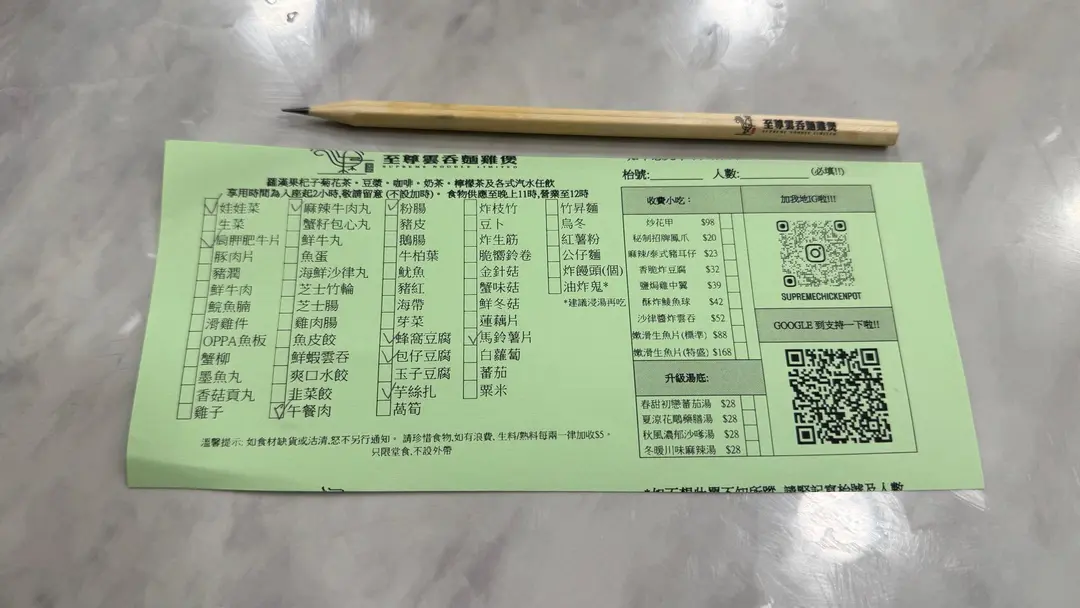 至尊雲吞麵雞煲
SUPREME NOODLE LIMITED
至尊雲吞麵雞煲
SUPREME NOODLE LIMITED
羅漢果杞子菊花茶,豆漿,咖啡,奶茶,檸檬茶及各式汽水任飲
享用時間為入座起2小時,敬請留意 (不設加時)。 食物供應至晚上11時,營業至12時
枱號:
人數:
(必填!!)
娃娃菜
生菜
胸胛肥牛片
豚肉片
豬潤
鮮牛肉
鯇魚腩
滑雞件
OPPA魚板
蟹柳
墨魚丸
香菇貢丸
雞子
麻辣牛肉丸
蟹籽包心丸
鮮牛丸
魚蛋
海鮮沙律丸
芝士竹輪
芝士腸
雞肉腸
魚皮餃
鮮蝦雲吞
爽口水餃
韭菜餃
午餐肉
粉腸
豬皮
鵝腸
牛柏葉
魷魚
豬紅
海帶
芽菜
蜂窩豆腐
包仔豆腐
玉子豆腐
芋絲扎
萵筍
炸枝竹
豆卜
炸生筋
脆響鈴卷
金針菇
蟹味菇
鮮冬菇
蓮藕片
馬鈴薯片
白蘿蔔
蕃茄
粟米
竹昇麵
烏冬
紅薯粉
公仔麵
炸饅頭(個)
油炸鬼*
*建議浸湯再吃
收費小吃:
炒花甲 $98
秘制招牌鳳爪 $20
麻辣/泰式豬耳仔 $23
香脆炸豆腐 $32
鹽焗雞中翼 $39
酥炸鯪魚球 $42
沙律醬炸雲吞 $52
嫩滑生魚片(標準) $88
嫩滑生魚片(特盛) $168
升級湯底:
春甜初戀蕃茄湯 $28
夏涼花鵰藥膳湯 $28
秋風濃郁沙嗲湯 $28
冬暖川味麻辣湯 $28
加我地IG啦!!!
SUPREMECHICKENPOT
GOOGLE 到支持一下啦!!
溫馨提示: 如食材缺貨或沽清,恕不另行通知。 請珍惜食物,如有浪費, 生料/熟料每兩一律加收$5。
只限堂食,不設外帶